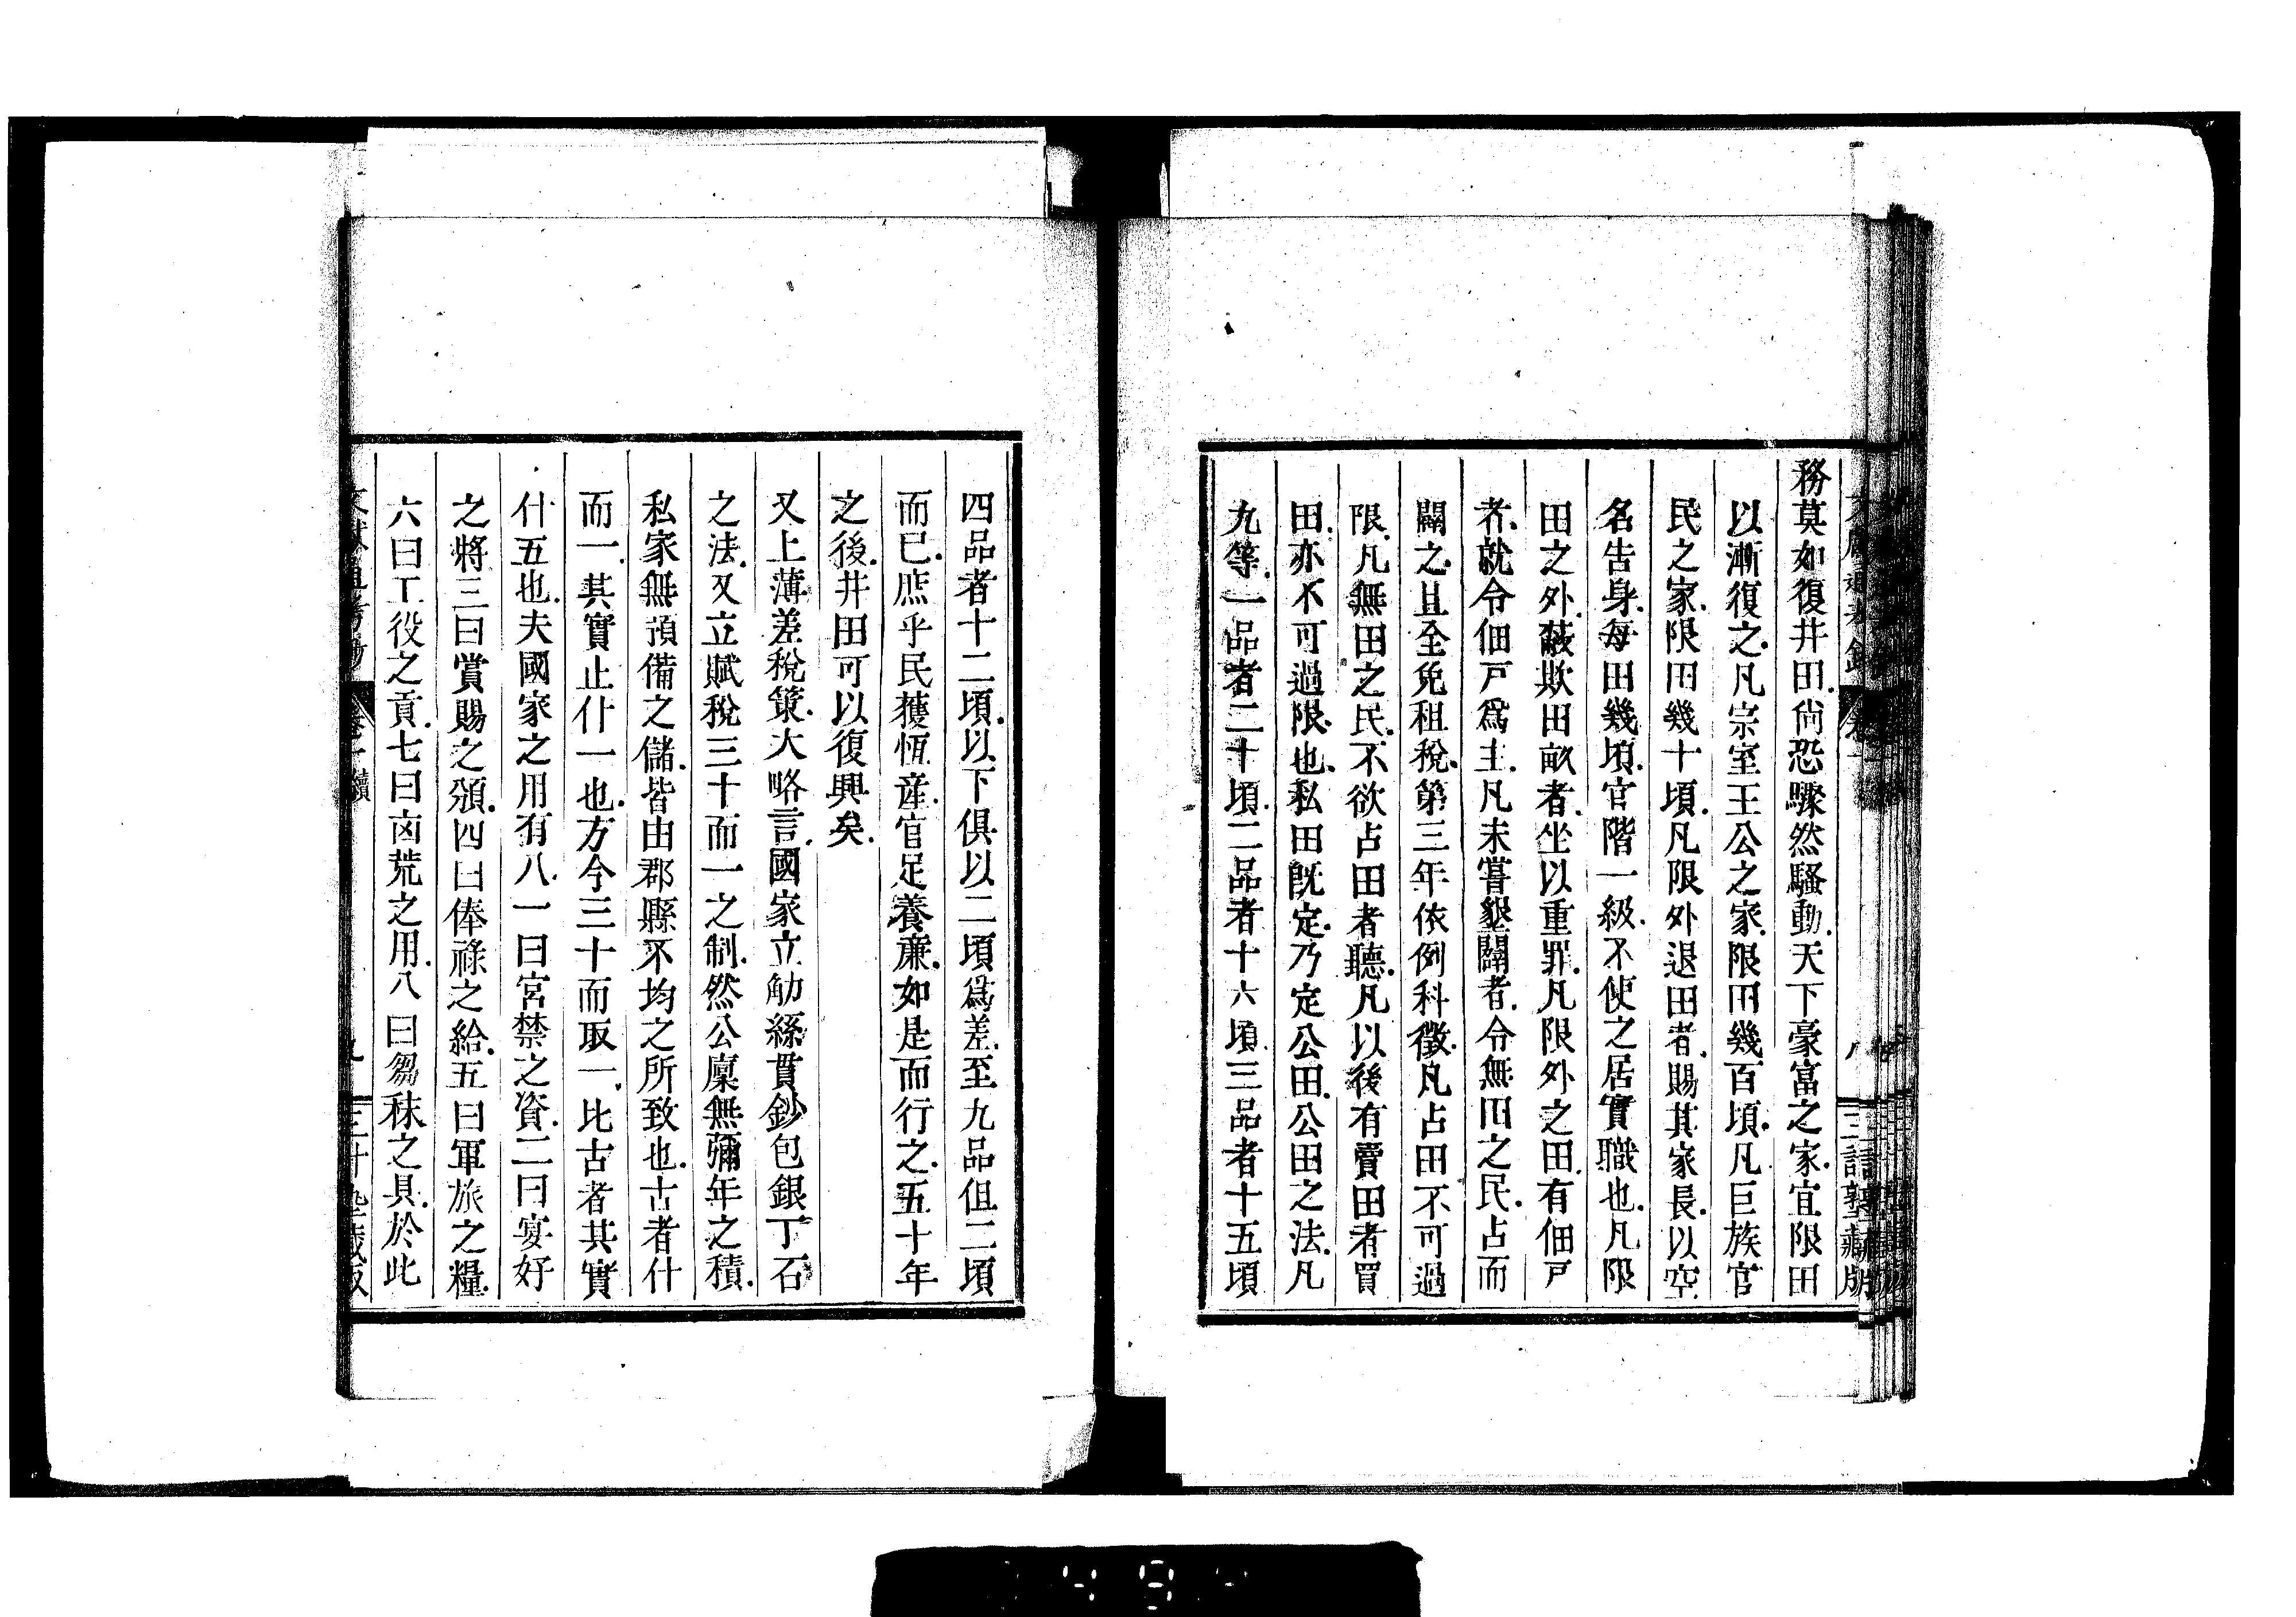 務莫如復井田尙恐驟然騷動天下豪富之家宜限田
以漸復之凡宗室王公之家限田幾百頃凡巨族官
民之家限田幾十頃凡限外退田者賜其家長以空
名告身每田幾頃官階一級不使之居實職也凡限
田之外蔽欺田畝者坐以重罪凡限外之田有佃戸
者就令佃戸爲主凡未嘗墾闢者令無田之民占而
闢之且全免租稅第三年依例科徵凡占田不可過
限凡無田之民不欲占田者聽凡以後有賣田者買
田亦不可過限也私田旣定乃定公田公田之法凡
九等一品者二十頃二品者十六頃三品者十五頃
四品者十二頃以下俱以二頃爲差至九品但二頃
而已庶乎民獲恆產官足養廉如是而行之五十年
之後井田可以復興矣
又上薄差稅策大略言國家立觔絲貫鈔包銀丁石
之法又立賦稅三十而一之制然公廩無彌年之積
私家無預備之儲皆由郡縣不均之所致也古者什
而一其實止什一也方今三十而取一比古者其實
什五也夫國家之用有八一曰宮禁之資二曰宴好
之將三曰賞賜之頒四曰俸祿之給五曰軍旅之糧
六曰工役之貢七曰凶荒之用八曰芻秣之具於此